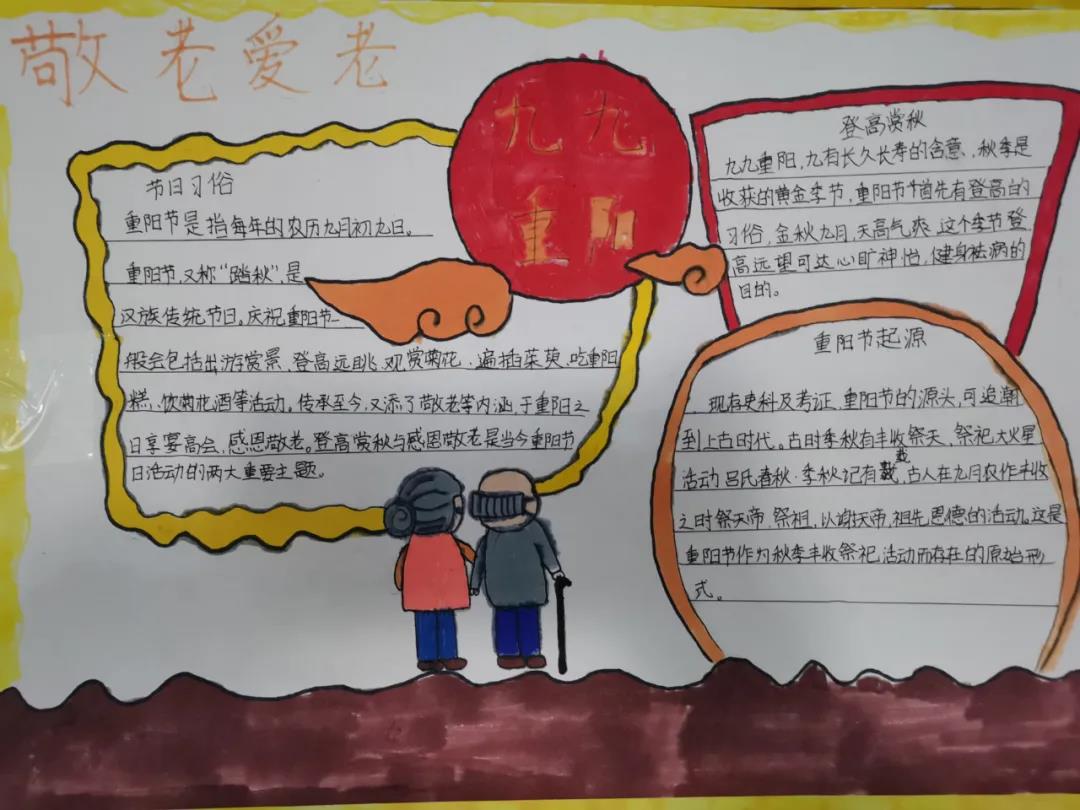 敬老爱老
九九
重阳
节日习俗
重阳节是指每年的农历九月初九日。
重阳节,又称“踏秋”是
汉族传统节日。庆祝重阳节一
般会包括出游赏景、登高远眺、观赏菊花、遍插茱萸、吃重阳
糕、饮菊花酒等活动。传承至今,又添了敬老等内涵,于重阳之
日享宴高会,感恩敬老。登高赏秋与感恩敬老是当今重阳节
日活动的两大重要主题。
登高赏秋
九九重阳,九有长久长寿的含意,秋季是
收获的黄金季节,重阳节首先有登高的
习俗,金秋九月,天高气爽,这个季节登
高远望可达心旷神怡,健身祛病的
目的。
重阳节起源
现存史料及考证,重阳节的源头,可追溯
到上古时代。古时季秋有丰收祭天、祭祀大火星
活动.吕氏春秋·季秋记有载,古人在九月农作丰收
之时祭天帝、祭祖,以谢天帝、祖先恩德的活动。这是
重阳节作为秋季丰收祭祀活动而存在的原始形
式。